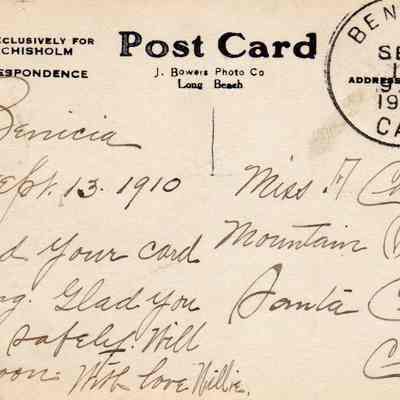 XCLUSIVELY FOR
CHISHOLM
ESPONDENCE
Post Card
J. Bowers Photo Co
Long Beach
ADDRESS
BEN
SE
1
19
CA
Benicia
ept. 13. 1910
d your card
g. Glad you
safely. Will
oon. With love Willie.
Miss F
Mountain
Santa